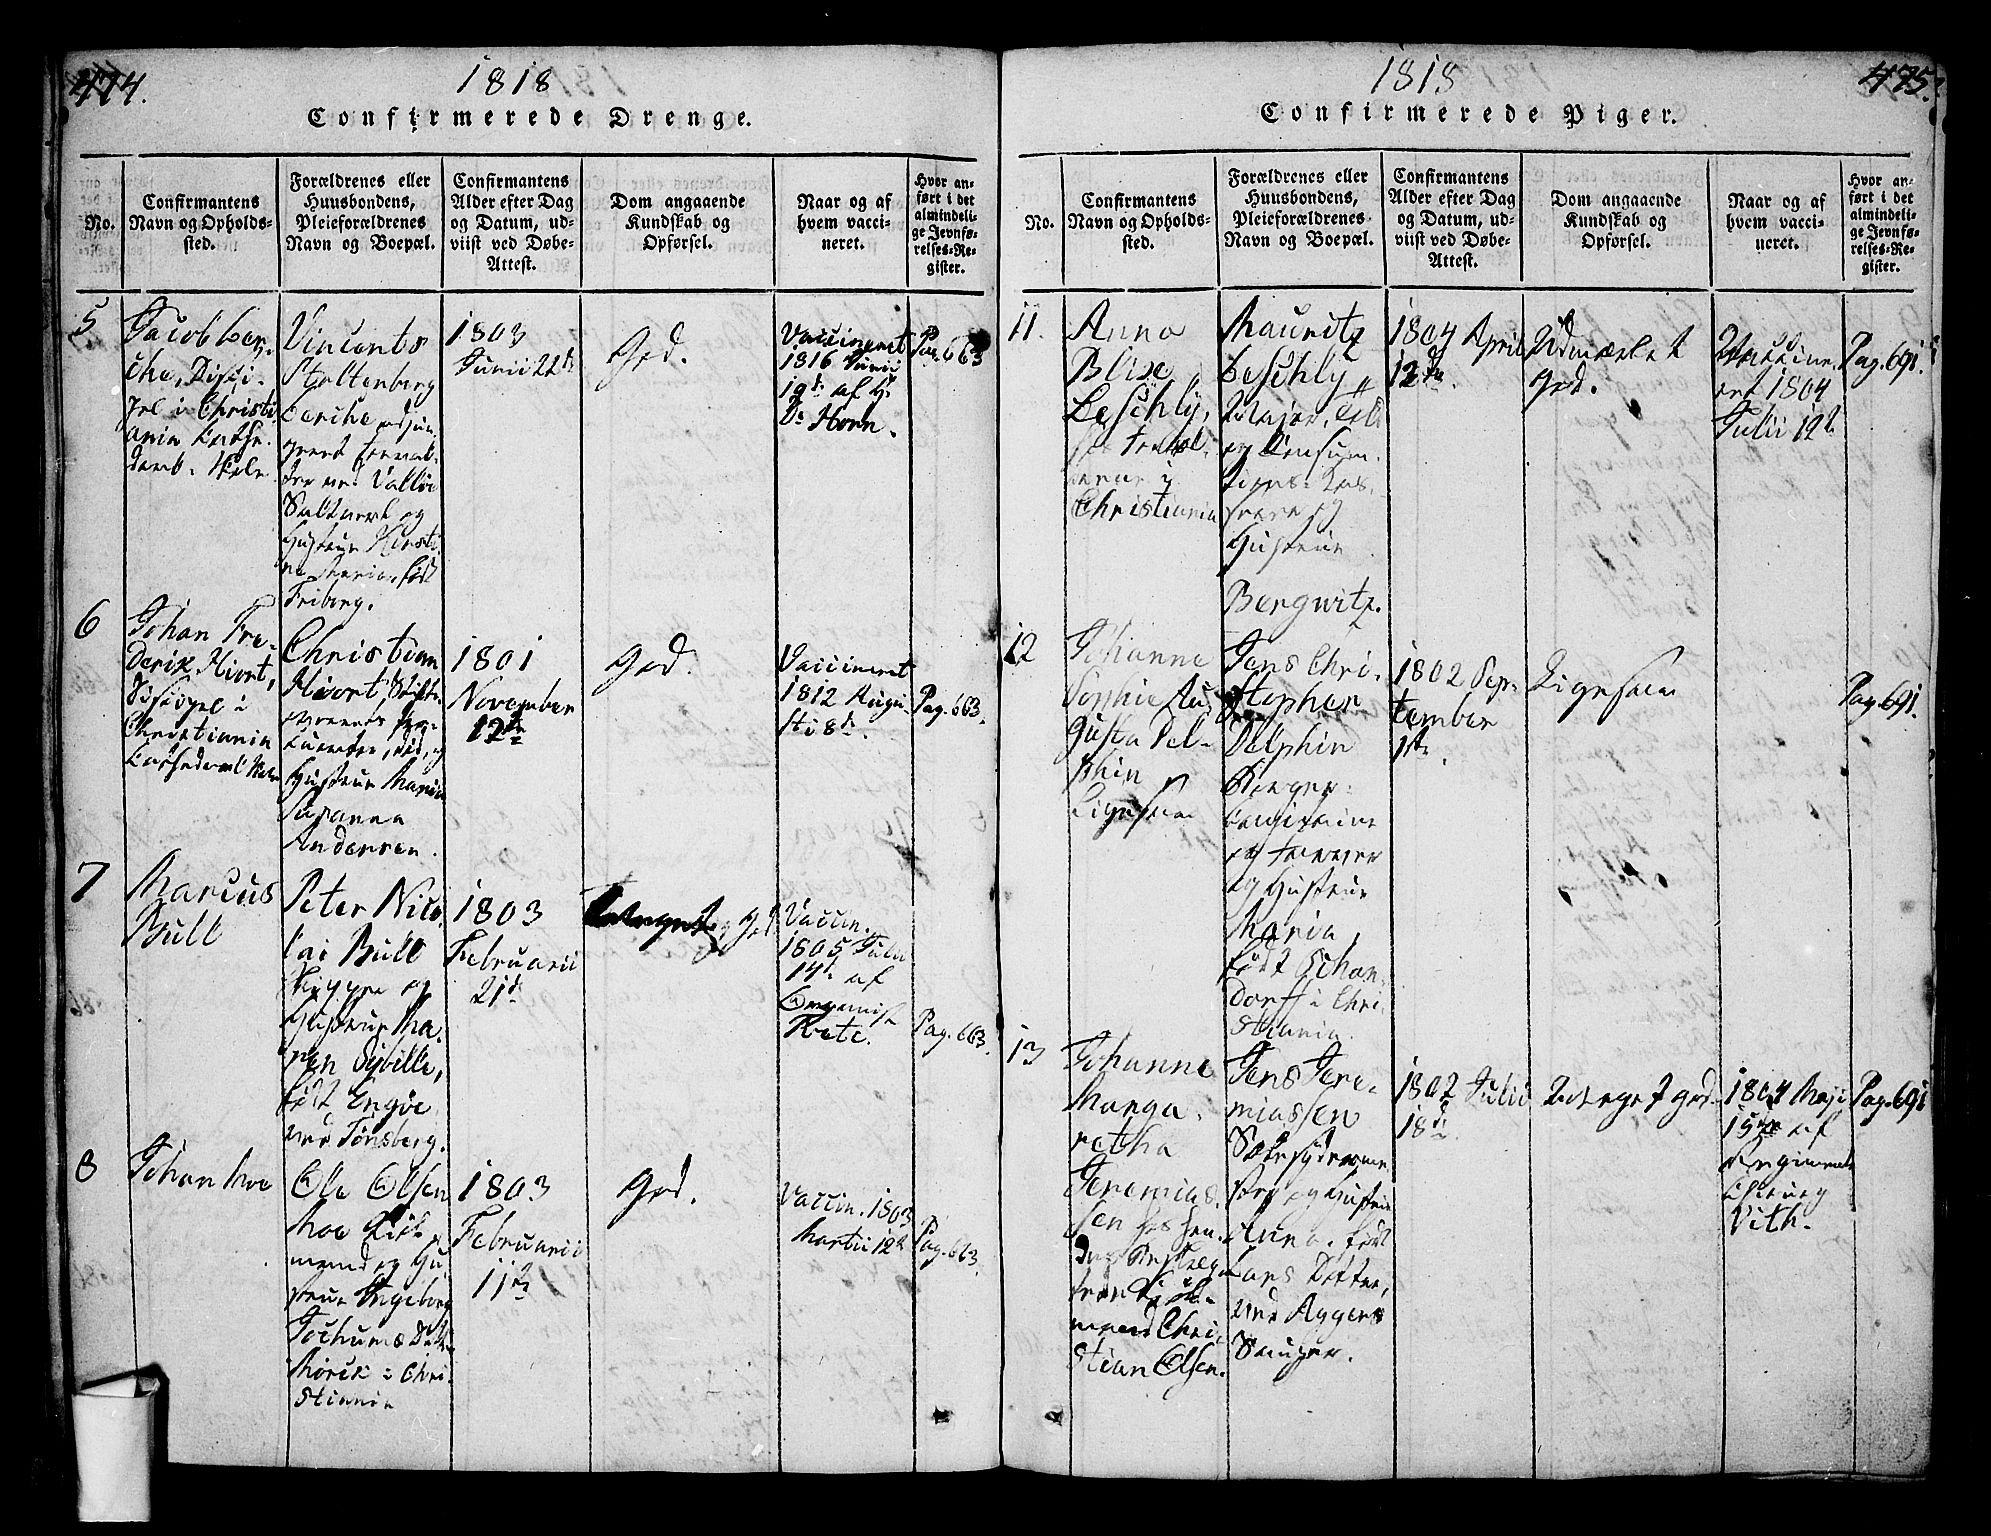 474.
1818
Confirmerede Drenge.
No.
Confirmantens
Navn og Opholds-
sted.
Forældrenes eller
Huusbondens,
Pleieforældrenes
Navn og Boepæl.
Confirmantens
Alder efter Dag
og Datum, ud-
viist ved Døbe-
Attest.
Dom angaaende
Kundskab og
Opførsel.
Naar og af
hvem vacci-
neret.
Hvor an-
ført i det
almindeli-
ge Jevnfø-
relses-Re-
gister.
5
Jacob Ler-
che, Disci-
pel i Christi
ania Kathe-
dral-Skole
Vincents
Stoltenberg
Lerche
ved Valløe
Saltverk og
Hustrue Kirsti-
ne Maria, født
Friborg.
1803
Junii 22de
God.
Vaccineret
1816 Junii
19de af Hr
Dr Horn.
Pag. 663
6
Johan Fre-
derik Hiort,
Discipel i
Christiania
Kathedral Skole
Christian
Hiort, Stifts-
Hustrue Maria
Susanna
Andersen.
1801
November
12te
God.
Vaccineret
1812 Augu-
sti 8de
Pag. 663.
7
Marcus
Bull
Peter Nico-
lai Bull
Skipper og
Hustrue Ma-
ren Sybille,
født Engøe
ved Tønsberg.
1803
Februarii
21de
og God
Vaccin.
1805 Julii
14de af
Organist
Rate.
Pag. 663.
8
Johan Moe
Ole Olsen
Moe
mand og Hu-
strue Ingeborg
Jochums Datter
Mørck i Chri-
stiania
1803
Februarii
11te
God.
Vaccin. 1803
Martii 12te
Pag. 663.
475.
1818
Confirmerede Piger.
No.
Confirmantens
Navn og Opholds-
sted.
Forældrenes eller
Huusbondens,
Pleieforældrenes
Navn og Boepæl.
Confirmantens
Alder efter Dag
og Datum, ud-
viist ved Døbe-
Attest.
Dom angaaende
Kundskab og
Opførsel.
Naar og af
hvem vacci-
neret.
Hvor an-
ført i det
almindeli-
ge Jevnfø-
relses-Re-
gister.
11.
Anna
Elise
Beschly,
hos Foræl-
drene i
Christiania
Mauritz
Beschly
Major, Told
og Consum-
tions-Kas-
serer og
Hustrue
Bergwitz.
1804 April
12te
Udmærket
god.
Vaccine-
ret 1804
Julii 12te
Pag. 691.
12
Johanne
Sophie Au-
gusta Del-
phin
Ligesaa
Jens Chri-
stopher
Delphin
og Hustrue
Maria,
født Schan-
dorff i Chri-
stiania.
1802 Sep-
tember
1ste
Ligesaa
Pag. 691.
13
Johanne
Marga-
retha
Jeremias-
sen
mand Chri-
stian Olsen.
Jens Jere-
miassen
og Hustrue
Anna, født
Lars Datter,
ved Aggers
1802 Julii
18de
Meget god.
1804 Maji
15de af
Regiments
Chirurg
Vith.
Pag. 691